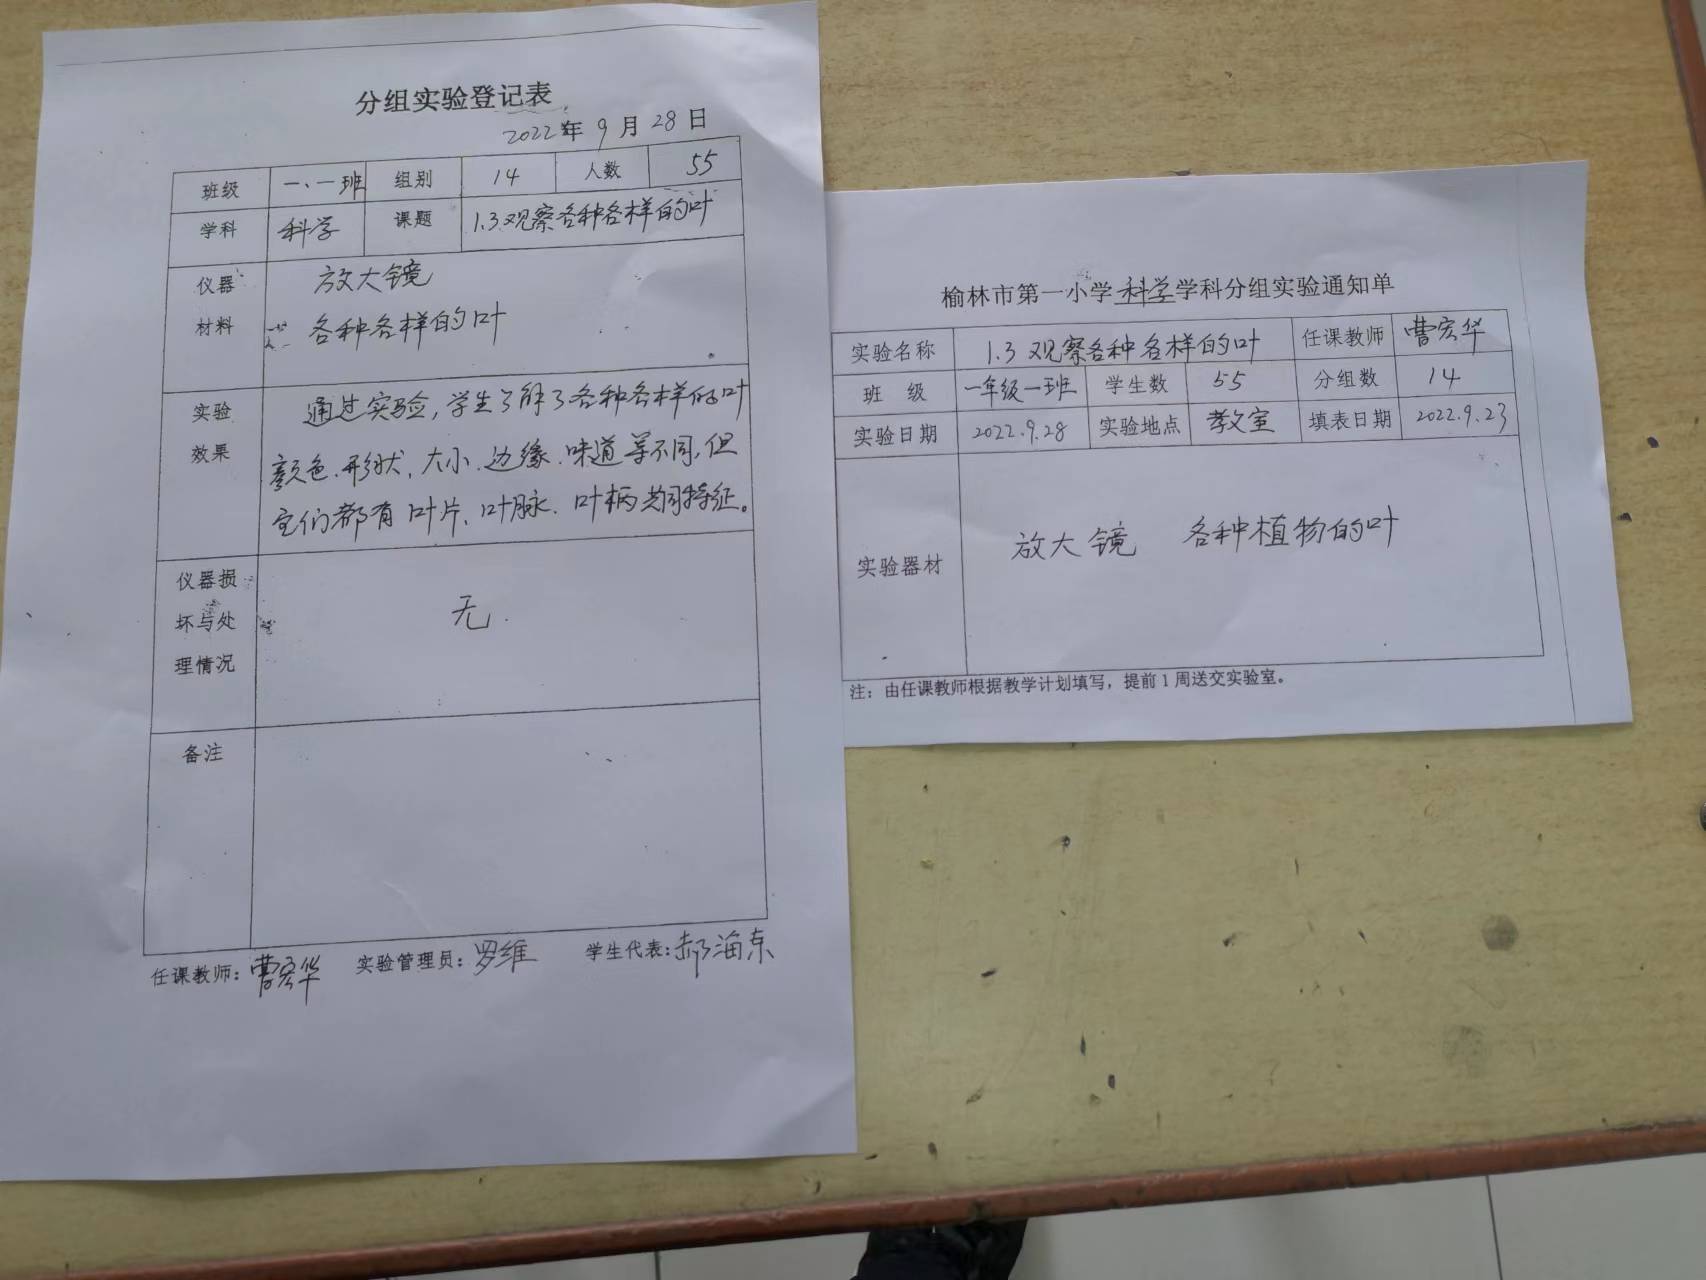 分组实验登记表
2022年9月28日
班级 一.一班 组别 14 人数 55
学科 科学 课题 1.3观察各种各样的叶
仪器 放大镜
材料 各种各样的叶
实验 通过实验,学生了解了各种各样的叶
效果 颜色、形状、大小、边缘、味道等不同,但
它们都有叶片、叶脉、叶柄共同特征。
仪器损
坏与处 无.
理情况
备注
任课教师:曹宏华 实验管理员:罗维 学生代表:郝海东
榆林市第一小学科学学科分组实验通知单
实验名称 1.3 观察各种各样的叶 任课教师 曹宏华
班 级 一年级一班 学生数 55 分组数 14
实验日期 2022.9.28 实验地点 教室 填表日期 2022.9.23
实验器材 放大镜 各种植物的叶
注:由任课教师根据教学计划填写,提前1周送交实验室。